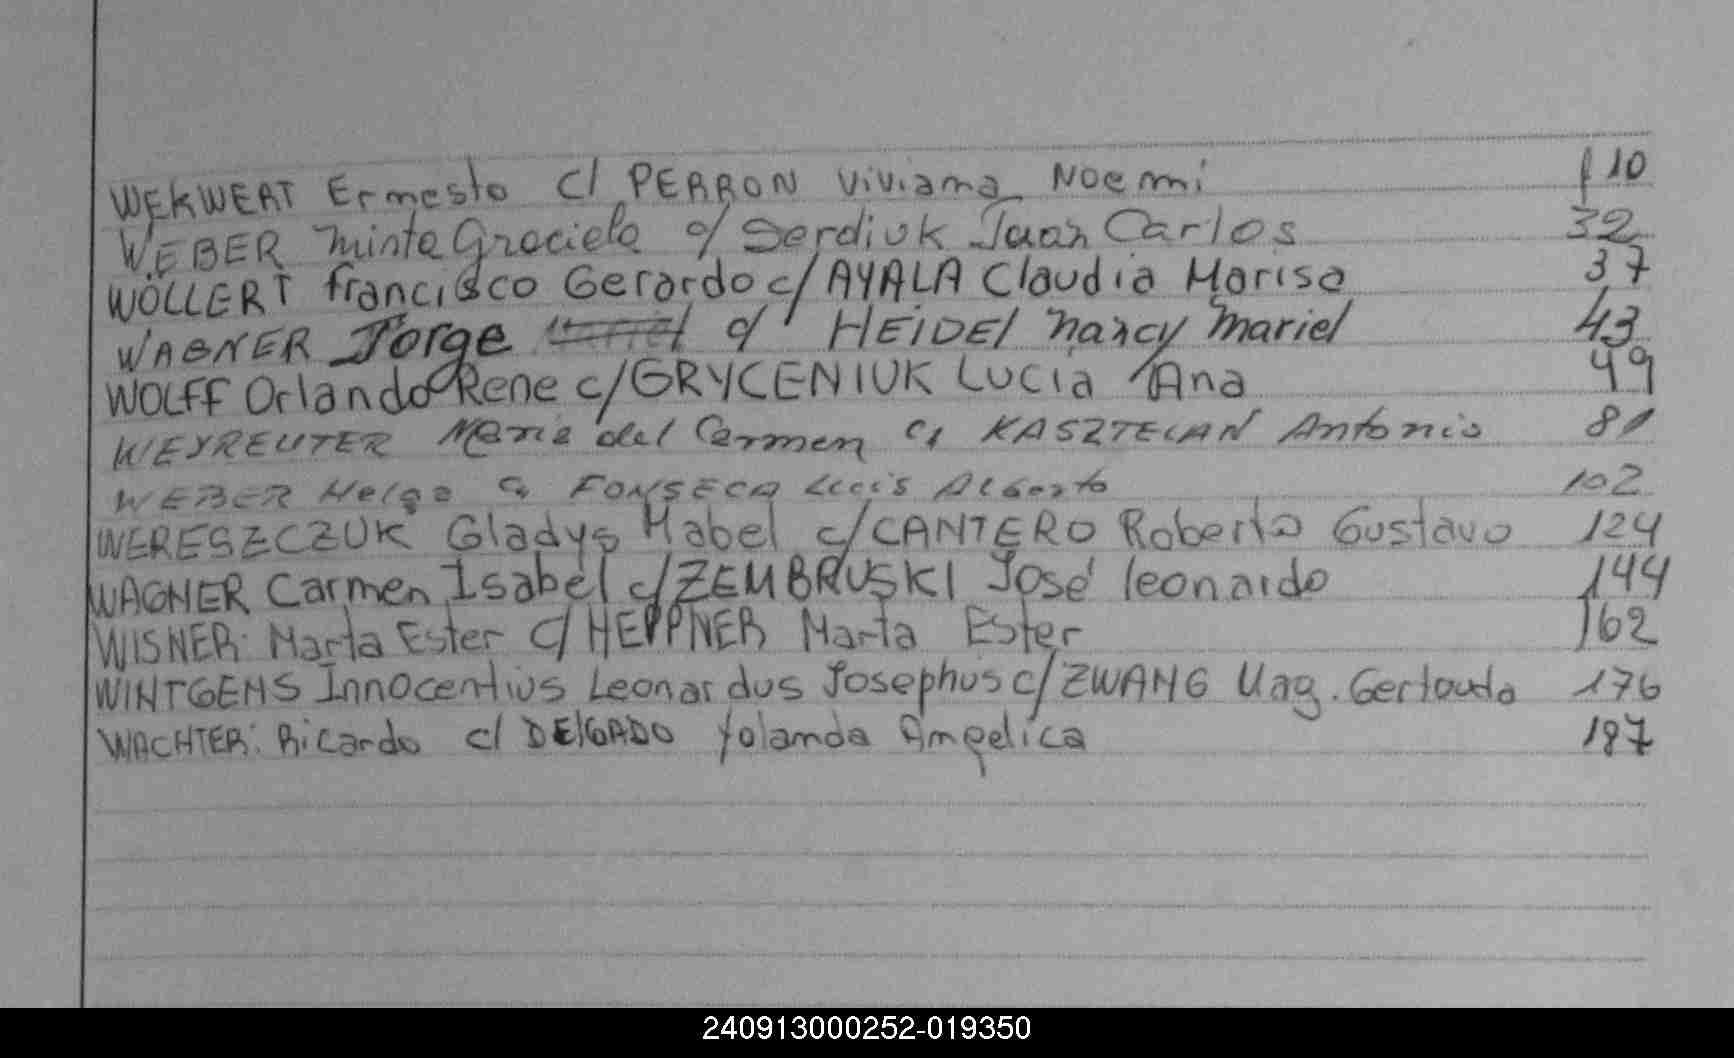 WEKWERT Ernesto c/ PERRON Viviana Noemi f 10
WEBER Minta Graciela c/ Serdiuk Juan Carlos 32
WOLLERT Francisco Gerardo c/ AYALA Claudia Marisa 37
WAGNER Jorge c/ HEIDEL Nancy Mariel 43
WOLFF Orlando Rene c/ GRYCENIUK Lucia Ana 49
WEYREUTER Maria del Carmen c/ KASZTELAN Antonio 81
WEBER Helga c/ FONSECA Luis Alberto 102
WERESZCZUK Gladys Mabel c/ CANTERO Roberto Gustavo 124
WAGNER Carmen Isabel c/ ZEMBRUSKI José Leonardo 144
WISNER: Marta Ester c/ HEPPNER Marta Ester 162
WINTGENS Innocentius Leonardus Josephus c/ ZWANG Mag. 176
WACHTER: Ricardo c/ DELGADO Yolanda Angelica 187
240913000252-019350